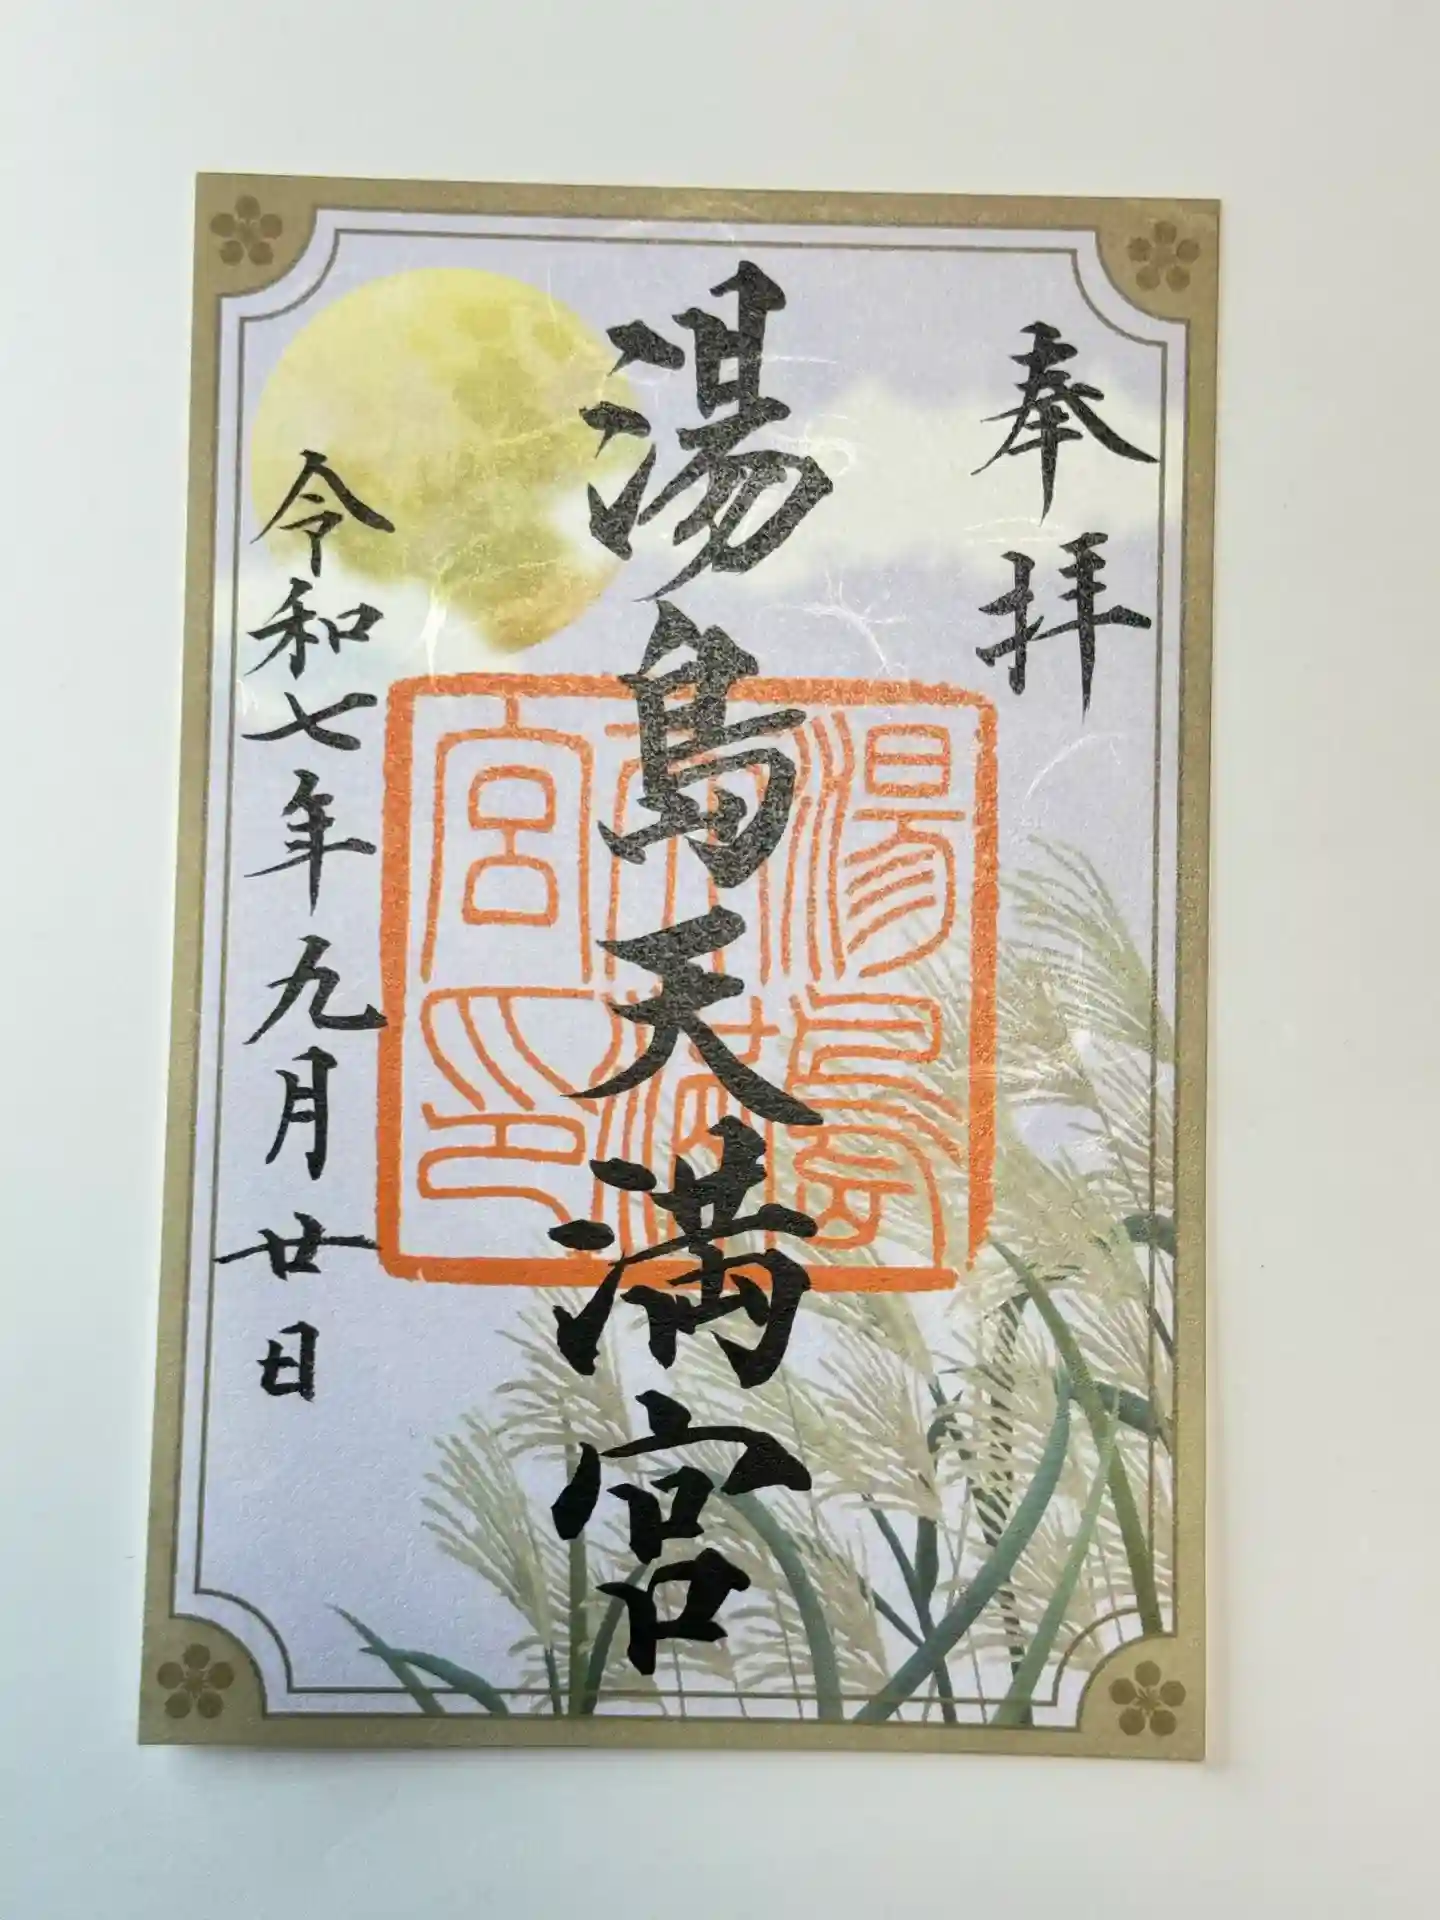 奉拝
湯島天満宮
湯島天満宮印
令和七年九月廿日